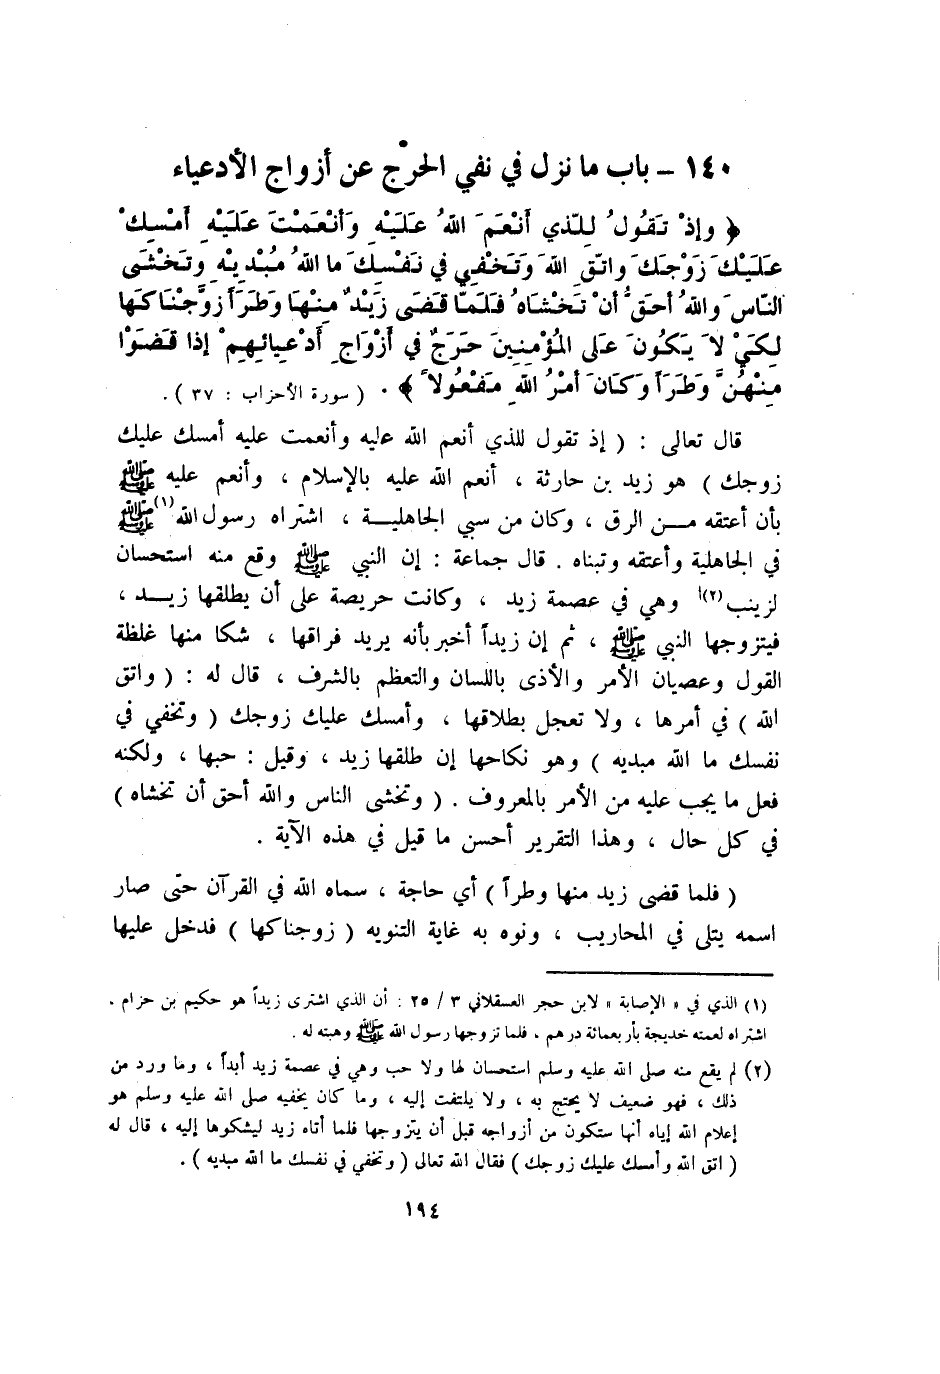 ١٤٠ – باب ما نزل في نفي الحرْج عن أزواج الأدعياء
﴿ وإذْ تَقُولُ للّذي أنْعَمَ اللهُ عَلَيْهِ وَأنْعَمْتَ عَلَيْهِ أمْسِكْ
عَلَيْكَ زَوْجَكَ واتّقِ اللهَ وَتَخْفِي في نَفْسِكَ ما اللهُ مُبْدِيْهِ وتَخْشَى
النّاسَ واللهُ أحَقُّ أنْ تَخْشَاهُ فَلَمّا قَضَى زَيْدٌ مِنْهَا وَطَرَاً زوّجْنَاكَهَا
لِكَيْ لا يَكُونَ عَلَى المُؤْمِنِينَ حَرَجٌ في أزْوَاجِ أدْعِيائِهِمْ إذا قَضَوْا
مِنْهُنَّ وَطَرَاً وَكَانَ أمْرُ اللهِ مَفْعُولاً ﴾ . ( سورة الأحزاب : ٣٧ ) .
قال تعالى : ( إذ تقول للذي أنعم الله عليه وأنعمت عليه أمسك عليك
زوجك ) هو زيد بن حارثة ، أنعم الله عليه بالإسلام ، وأنعم عليه ﷺ
بأن أعتقه مـن الرق ، وكان من سبي الجاهليـة ، اشتراه رسول الله(١) ﷺ
في الجاهلية وأعتقه وتبناه . قال جماعة : إن النبي ﷺ وقع منه استحسان
لزينب(٢) وهي في عصمة زيد ، وكانت حريصة على أن يطلقها زيـد ،
فيتزوجها النبي ﷺ ، ثم إن زيداً أخبر بأنه يريد فراقها ، شكا منها غلظة
القول وعصيان الأمر والأذى باللسان والتعظم بالشرف ، قال له : ( واتق
الله ) في أمرها ، ولا تعجل بطلاقها ، وأمسك عليك زوجك ( وتخفي في
نفسك ما الله مبديه ) وهو نكاحها إن طلقها زيد ، وقيل : حبها ، ولكنه
فعل ما يجب عليه من الأمر بالمعروف . ( وتخشى الناس والله أحق أن تخشاه )
في كل حال ، وهذا التقرير أحسن ما قيل في هذه الآية .
( فلما قضى زيد منها وطراً ) أي حاجة ، سماه الله في القرآن حتى صار
اسمه يتلى في المحاريب ، ونوه به غاية التنويه ( زوجناكها ) فدخل عليها
(١) الذي في « الإصابة » لابن حجر العسقلاني ٣ / ٢٥ : أن الذي اشترى زيداً هو حكيم بن حزام .
اشتراه لعمته خديجة بأربعمائة درهم ، فلما تزوجها رسول الله ﷺ وهبته له .
(٢) لم يقع منه صلى الله عليه وسلم استحسان لها ولا حب وهي في عصمة زيد أبداً ، وما ورد من
ذلك ، فهو ضعيف لا يحتج به ، ولا يلتفت إليه ، وما كان يخفيه صلى الله عليه وسلم هو
إعلام الله إياه أنها ستكون من أزواجه قبل أن يتزوجها فلما أتاه زيد ليشكوها إليه ، قال له
( اتق الله وأمسك عليك زوجك ) فقال الله تعالى ( وتخفي في نفسك ما الله مبديه ) .
١٩٤